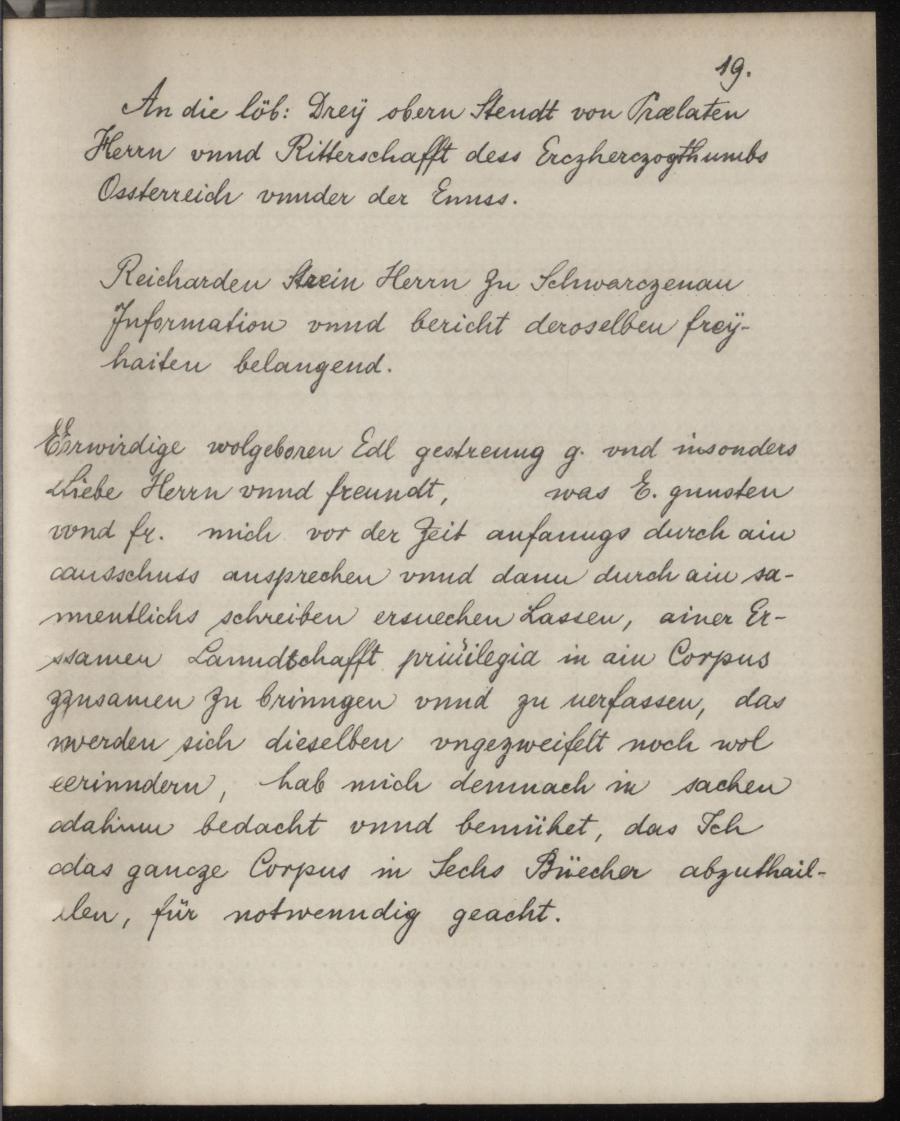 19.
An die löb: Dreÿ obern Stendt von Prælaten
Herrn vnnd Ritterschafft dess Erczherczogthumbs
Ossterreich vnnder der Ennss.
Reicharden Strein Herrn Zu Schwarczenau
Information vnnd bericht deroselben freÿ-
haiten belangend.
Eerwirdige wolgeboren Edl gestreung g. vnd insonders
Liebe Herrn vnnd freundt, was E. gunsten
vnd fr. mich vor der Zeit anfanngs durch ain
ausschuss ansprechen vnnd dann durch ain sa-
mentlichs schreiben ersuechen Lassen, ainer Er-
samen Lanndtschafft priuilegia in ain Corpus
zusamen Zu brinngen vnnd zu uerfassen, das
werden sich dieselben vngezweifelt noch wol
erinndern, hab mich demnach in sachen
dahinn bedacht vnnd bemühet, das Ich
das gancze Corpus in Sechs Büecher abzuthail-
len, für notwenndig geacht.